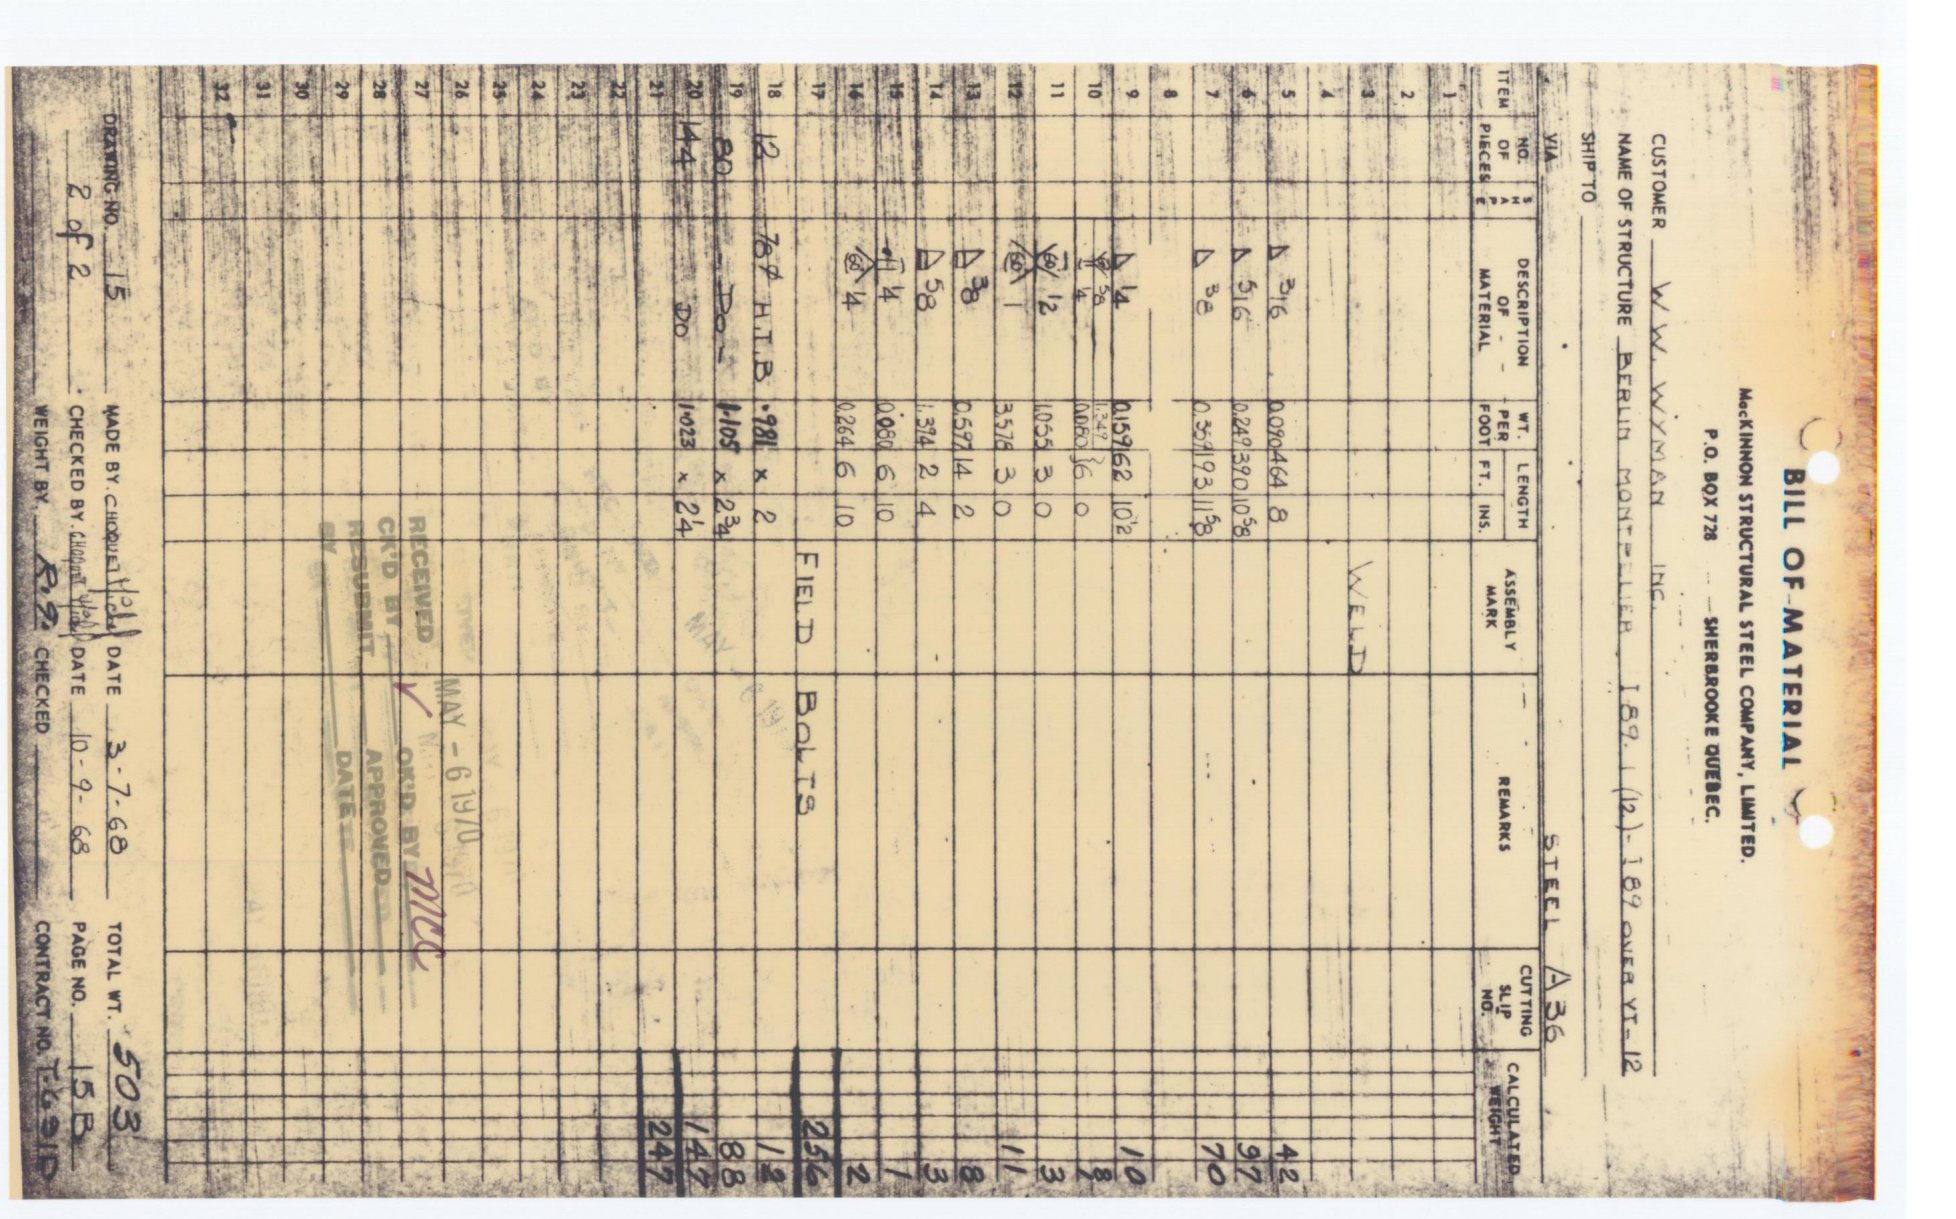 BILL OF MATERIAL
MacKINNON STRUCTURAL STEEL COMPANY, LIMITED.
P.O. BOX 728 — SHERBROOKE QUEBEC.
CUSTOMER W. W. WYMAN INC.
NAME OF STRUCTURE BERLIN MONTPELIER I 89. 1 (12) - I 89 OVER VT-12
SHIP TO
VIA STEEL A36
ITEM NO. OF PIECES SHAPE DESCRIPTION OF MATERIAL WT. PER FOOT LENGTH FT. INS. ASSEMBLY MARK REMARKS CUTTING SLIP NO. CALCULATED WEIGHT
1
2
3 WELD
4
5 △ 3/16 0.090 464 8 42
6 △ 5/16 0.249 390 10 5/8 97
7 △ 3/8 0.359 193 11 5/8 70
8
9 △ 1/4 0.159 62 10 1/2 10
10 5/8 1/4 1.349 0.080 } 6 0 8 1
11 60 1/2 1.055 3 0 3
12 60 1 3.578 3 0 11
13 △ 3/8 0.597 14 2 8
14 △ 5/8 1.394 2 4 3
15 1/4 0.080 6 10 1
16 60 1/4 0.264 6 10 2
17 FIELD BOLTS 256
18 12 7/8 ϕ H.T.B .981 x 2 12
19 80 - DO - 1.105 x 2 3/4 88
20 144 DO 1.023 x 2 1/4 147
21 247
22
23
24
25
26
27
28
29
30
31
32
MAY - 6 1970
RECEIVED
CK'D BY OK'D BY MCC
RESUBMIT APPROVED
BY DATE
DRAWING NO. 15 MADE BY. CHOQUET DATE 3-7-68 TOTAL WT. 503
2 of 2 CHECKED BY. DATE 10-9-68 PAGE NO. 15B
WEIGHT BY. CHECKED CONTRACT NO. T-691D